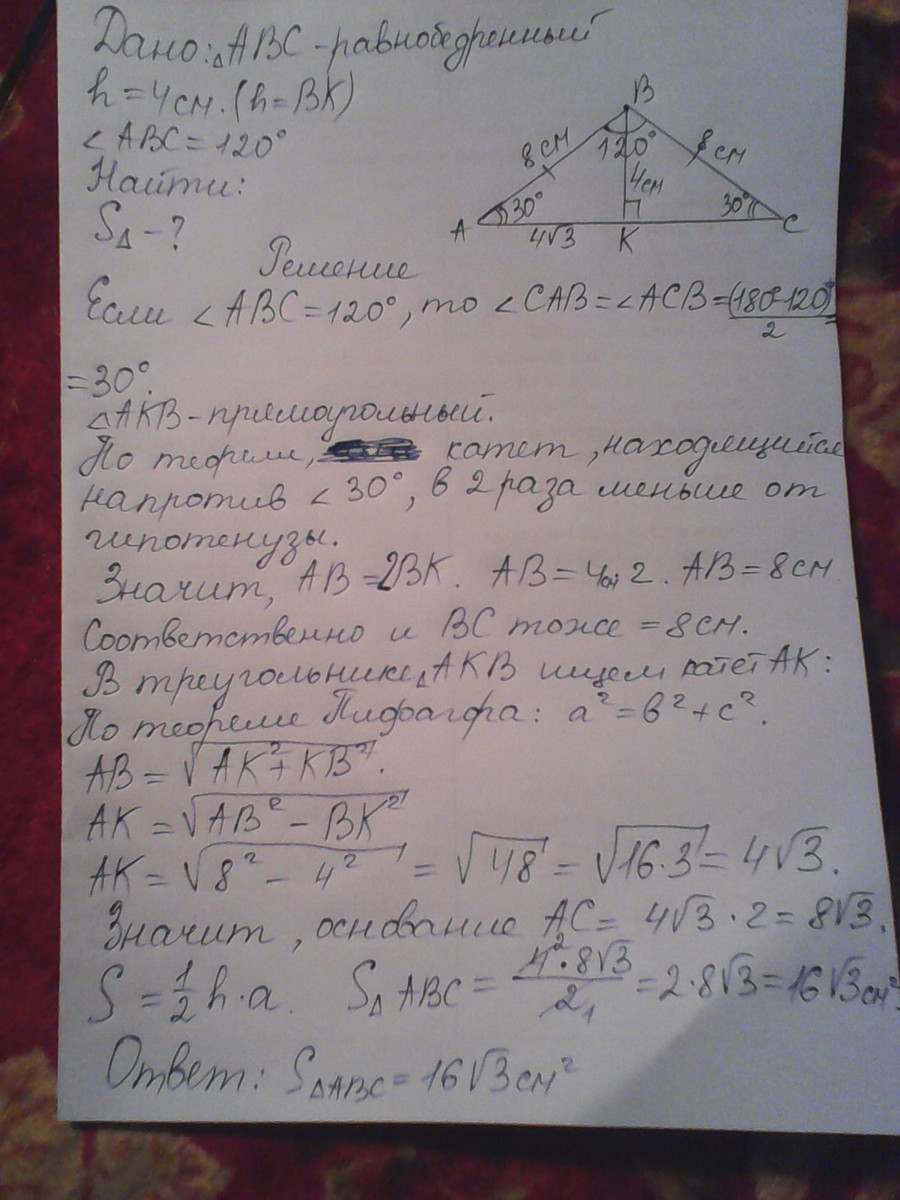 Дано: △ABC - равнобедренный
h = 4 см. (h = BK)
∠ABC = 120°
Найти:
S△ - ?
B
8 см
120°
8 см
4 см
30°
30°
A
4√3
K
C
Решение
Если ∠ABC = 120°, то ∠CAB = ∠ACB = (180°-120°)/2 =
= 30°.
△AKB - прямоугольный.
По теореме, катет, находящийся
напротив ∠30°, в 2 раза меньше от
гипотенузы.
Значит, AB = 2BK. AB = 4см·2. AB = 8 см.
Соответственно и BC тоже = 8 см.
В треугольнике △AKB ищем катет AK:
По теореме Пифагора: a² = b² + c².
AB = √(AK² + KB²).
AK = √(AB² - BK²)
AK = √(8² - 4²) = √48 = √(16·3) = 4√3.
Значит, основание AC = 4√3 · 2 = 8√3.
S = 1/2 h·a. S△ABC = 4²·8√3/2₁ = 2·8√3 = 16√3 см².
Ответ: S△ABC = 16√3 см²